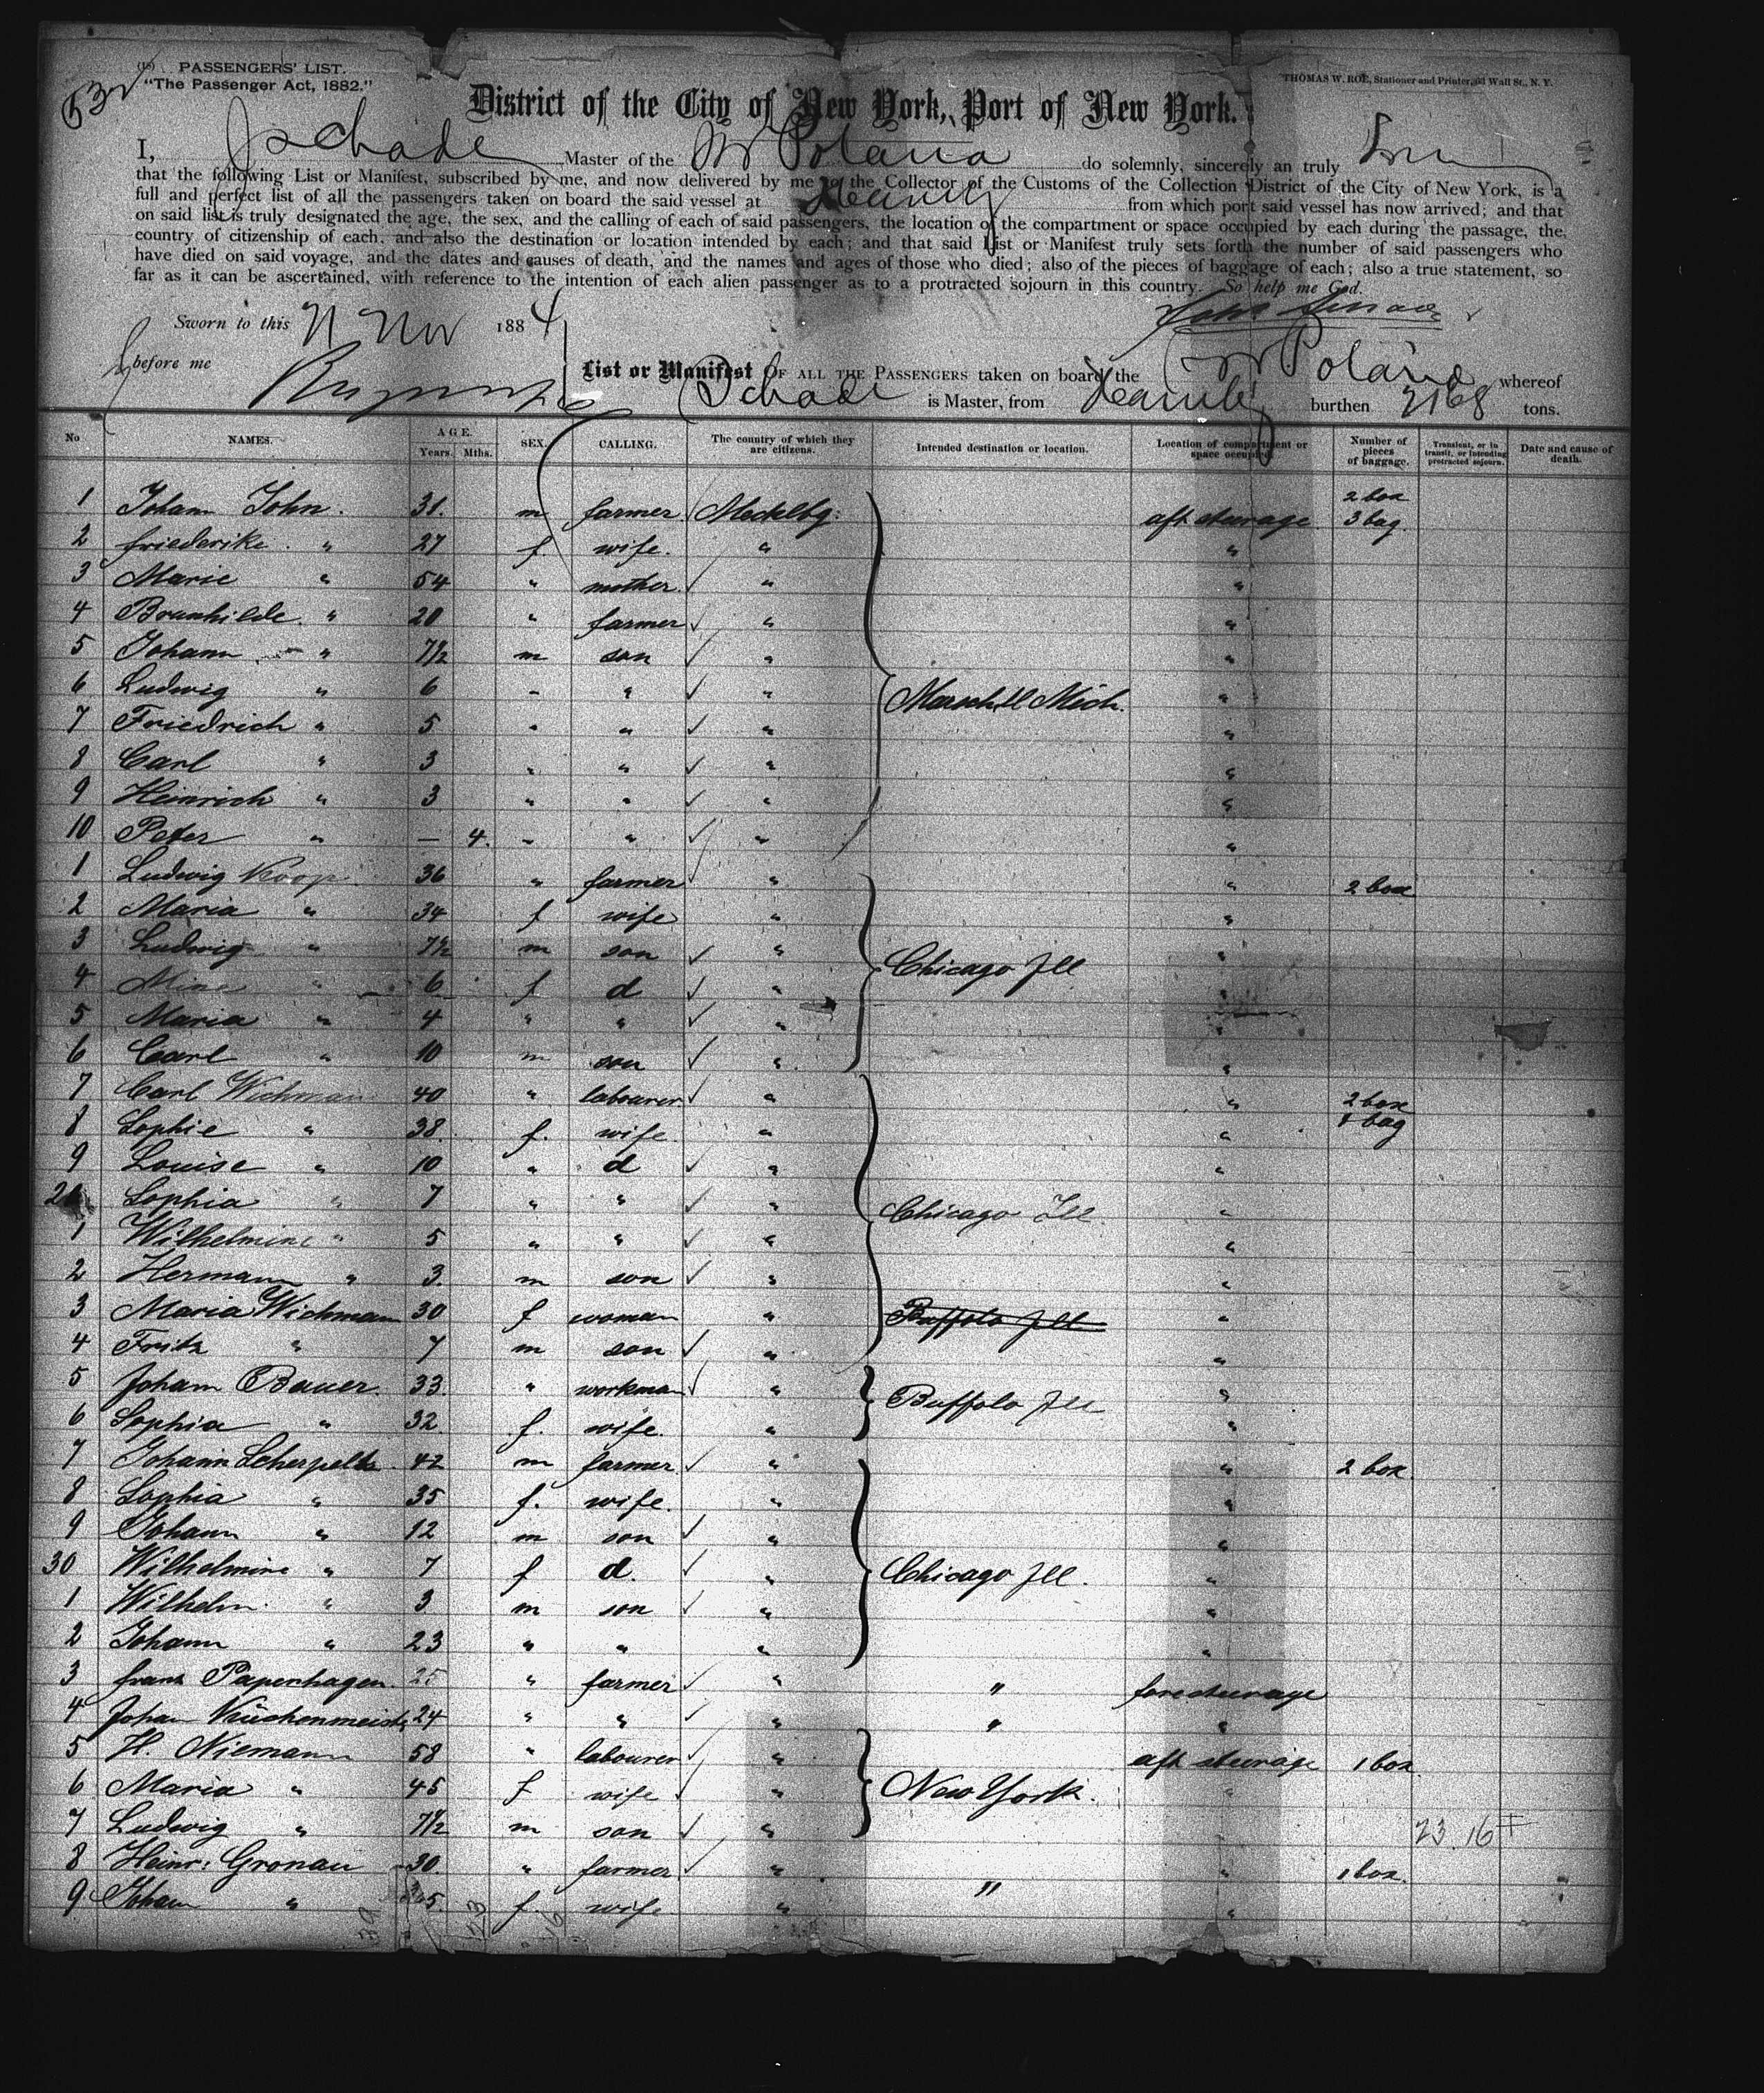 (16) PASSENGERS' LIST.
"The Passenger Act, 1882."
THOMAS W. ROE, Stationer and Printer, 93 Wall St., N. Y.
District of the City of New York, Port of New York.
I, J Schade Master of the SS Polaria do solemnly, sincerely an truly
that the following List or Manifest, subscribed by me, and now delivered by me to the Collector of the Customs of the Collection District of the City of New York, is a
full and perfect list of all the passengers taken on board the said vessel at Hambg from which port said vessel has now arrived; and that
on said list is truly designated the age, the sex, and the calling of each of said passengers, the location of the compartment or space occupied by each during the passage, the
country of citizenship of each, and also the destination or location intended by each; and that said List or Manifest truly sets forth the number of said passengers who
have died on said voyage, and the dates and causes of death, and the names and ages of those who died; also of the pieces of baggage of each; also a true statement, so
far as it can be ascertained, with reference to the intention of each alien passenger as to a protracted sojourn in this country. So help me God.
Sworn to this 21 Nov 1884
before me
List or Manifest OF ALL THE PASSENGERS taken on board the SS Polaria whereof
Schade is Master, from Hambg burthen 2168 tons.
No NAMES. AGE. Years. Mths. SEX. CALLING. The country of which they are citizens. Intended destination or location. Location of compartment or space occupied. Number of pieces of baggage. Transient, or in transit, or intending protracted sojourn. Date and cause of death.
1 Johann John. 31. m farmer Mecklbg. aft steerage 2 box 3 bag.
2 friederike " 27 f wife. " "
3 Marie " 54 " mother " "
4 Brunhilde " 20 " farmer " "
5 Johann " 7½ m son " "
6 Ludwig " 6 " " " Marschll Mich. "
7 Friedrich " 5 " " " "
8 Carl " 3 " " " "
9 Heinrich " 3 " " " "
10 Peter " — 4. " " " "
1 Ludwig Koop 36 " farmer " " 2 box
2 Maria " 34 f wife " "
3 Ludwig " 7½ m son " "
4 Mine " 6 f d " Chicago Ill "
5 Maria " 4 " " " "
6 Carl " 10 m son " "
7 Carl Wichman 40 " labourer " " 2 box 1 bag
8 Sophie " 38. f. wife " "
9 Louise " 10 " d " "
20 Sophia " 7 " " " Chicago Ill. "
1 Wilhelmine " 5 " " " "
2 Hermann " 3. m son " "
3 Maria Wichmann 30 f woman " Buffalo Ill "
4 Fritz " 7 m son " "
5 Johann Bauer. 33. " workman " Buffalo Ill "
6 Sophia " 32. f. wife. " "
7 Johann Scherpelts 42 m farmer. " " 2 box.
8 Sophia " 35 f. wife. " "
9 Johann " 12 m son " "
30 Wilhelmine " 7 f d. " Chicago Ill. "
1 Wilhelm " 3 m son " "
2 Johann " 23 " " " "
3 franz Papenhagen 25 " farmer " " fore steerage
4 Johan Küchenmeister 24 " " " " "
5 H. Niemann 58 " labourer " aft steerage 1 box.
6 Maria " 45 f wife " New York. "
7 Ludwig " 7½ m son "
23 16
8 Heinr: Gronau 30. " farmer " " 1 box.
9 Johann " 25. f. wife " " "
39 23 16